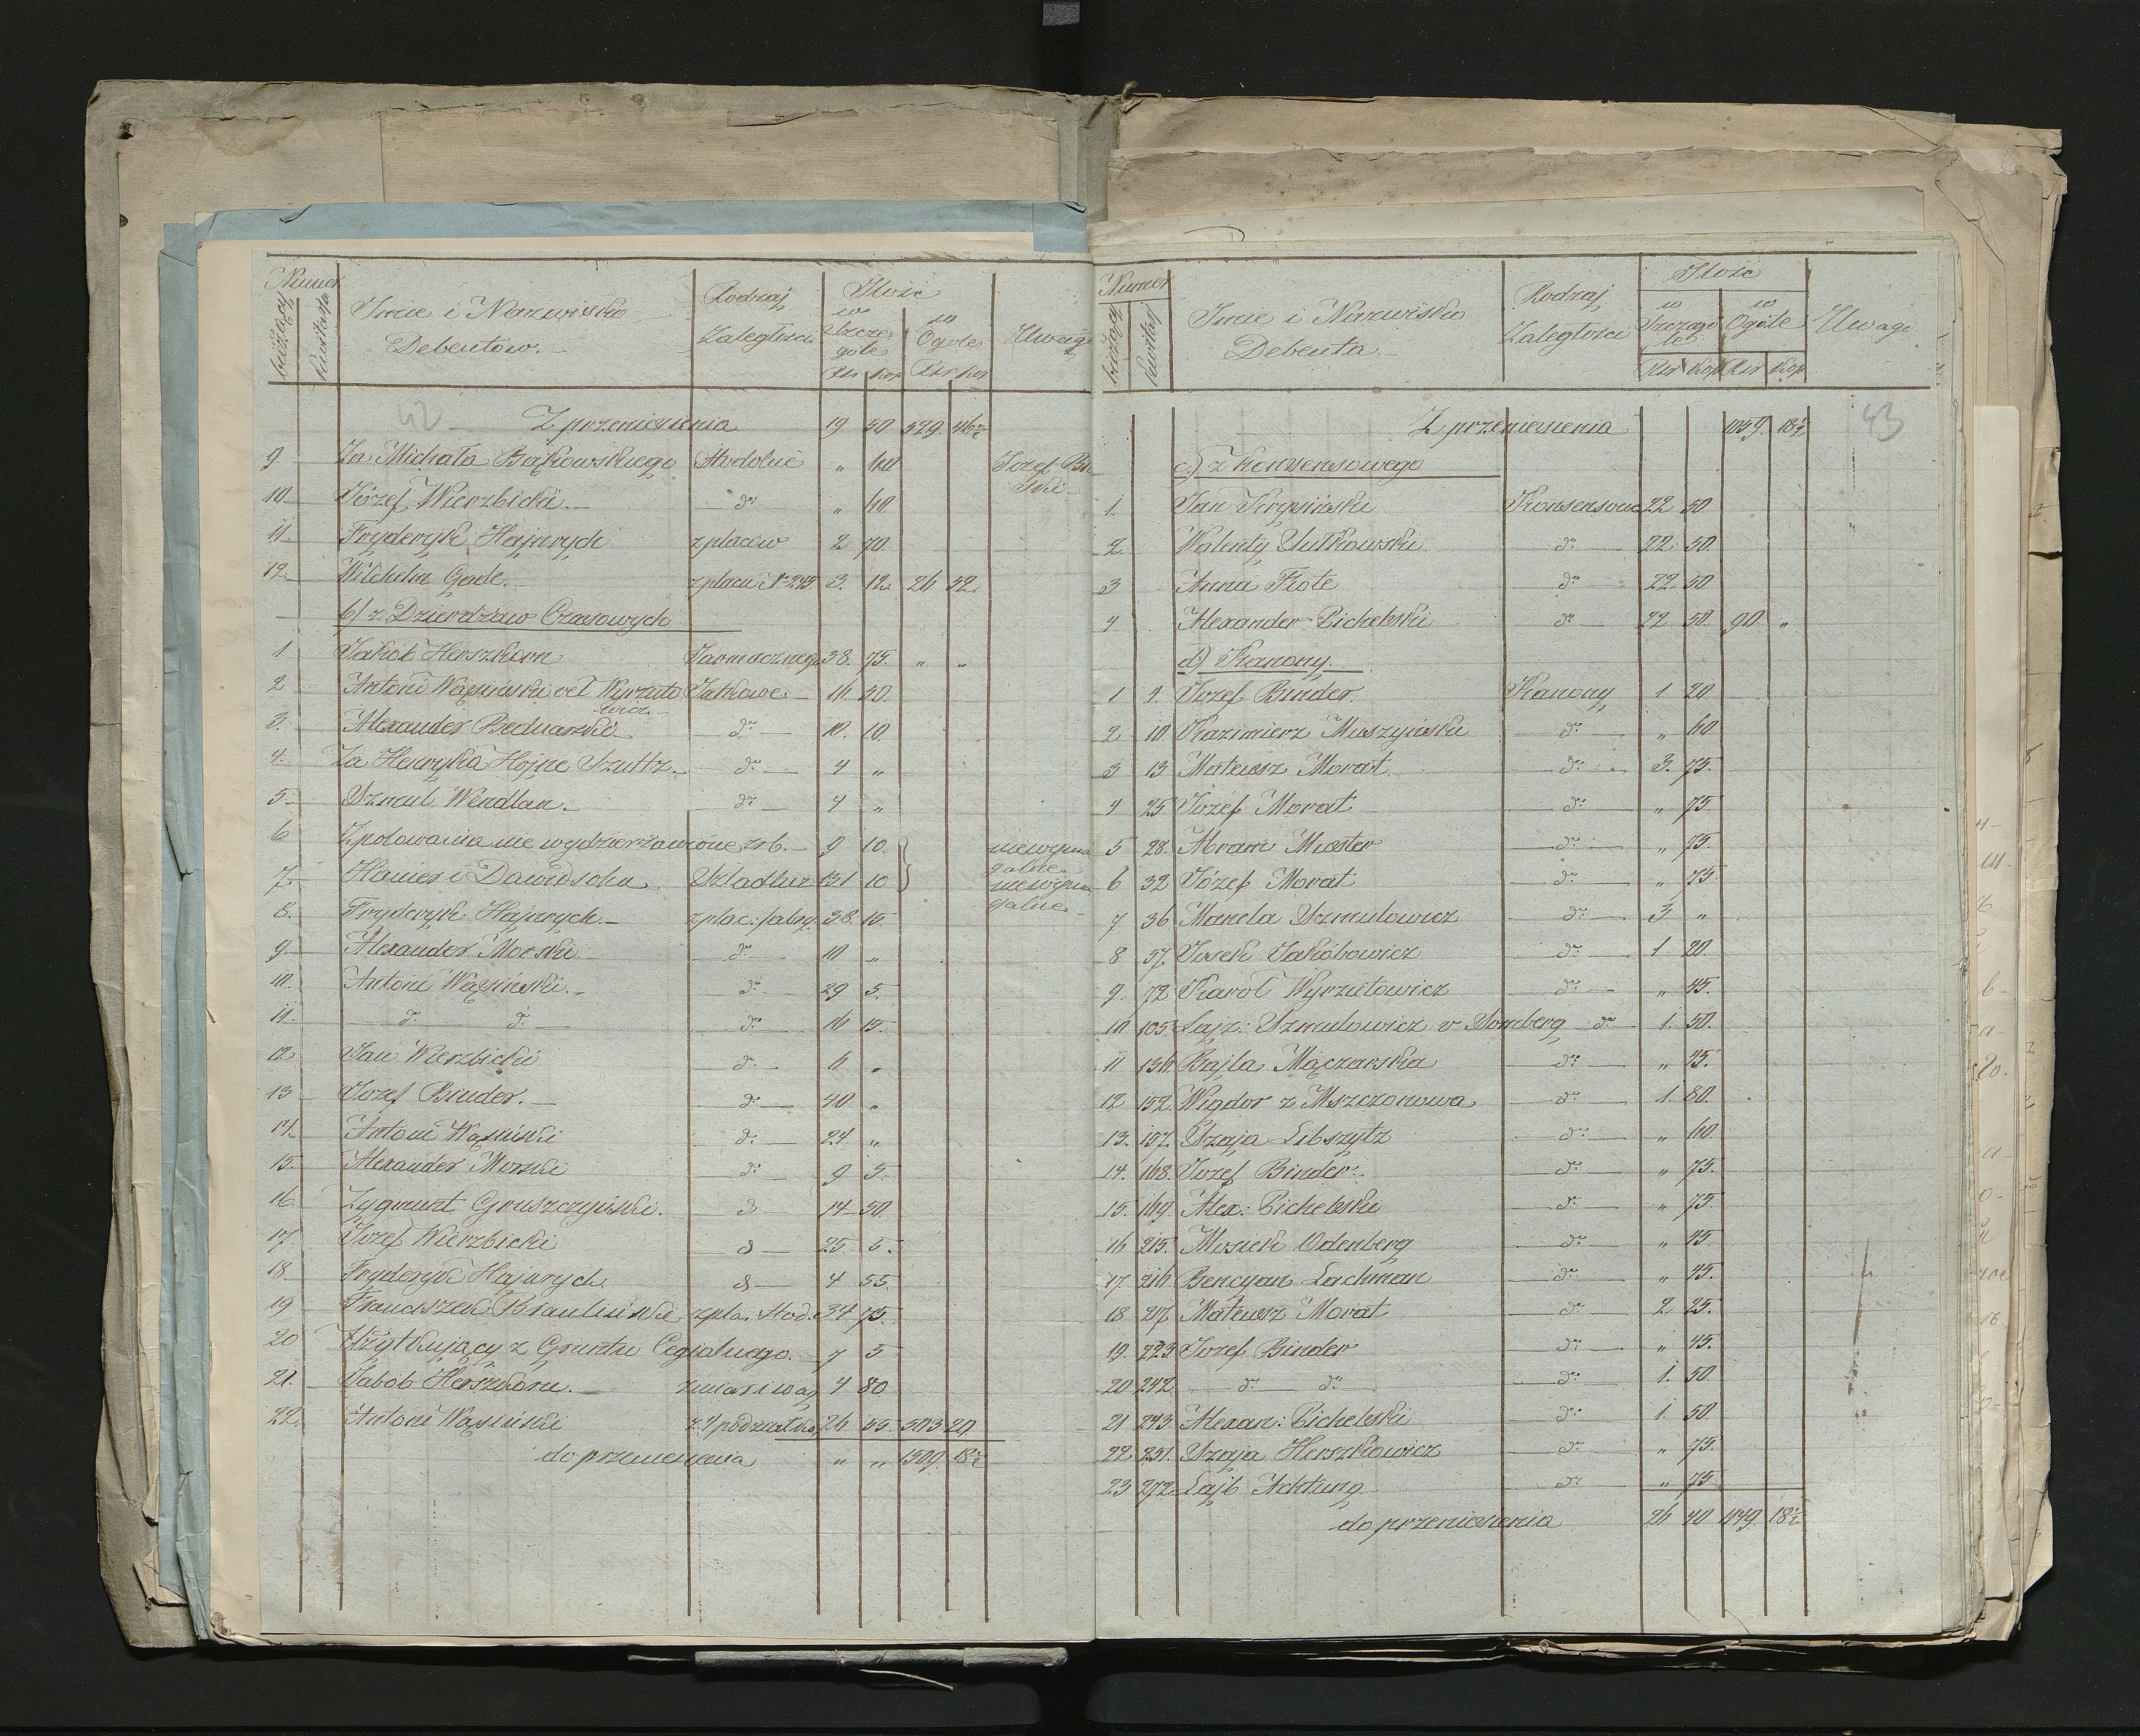 Numer
bieżący
kwitarjs
Imie i Nazwisko
Debentów.
Rodzaj
Zaległości
Ilość
w Szczególe
w Ogóle
Rsr kop
Rsr kop
Uwagi
42
Z przeniesienia 19 50 529. 46½
9 Za Michała Bąkowskiego Stodolne „ 60 Jozef
10. Józef Wierzbicki. do „ 60
11. Fryderyk Hajnrych z placów 2 70.
12. Wilchelm Gade. z placu No 245. 3. 12. 26 52.
b/ z Dzierdżaw Czasowych
1 Jakób Herszkorn Jarmaczne 38. 75. „ „
2 Antoni Wąsiński vel Wyrzutowicz Jatkowe 16 50.
3. Alexander Bednarski do 10. 10.
4. Za Henryka Hojne Szultz do 4 „
5 Szmul Wendlan. do 4 „
6 Z polowania nie wydzierżawione 9 10.
7. Hanier i Dawidsohn. 131 10
8. Fryderyk Hajnrych. z plac: fabry. 38. 15.
9. Alexander Morski do 10 „
10. Antoni Wąsiński. do 29 5.
11. do do do 16 15.
12 Jan Wierzbicki do 6 „
13 Jozef Binder. do 40 „
14. Antoni Wąsiński do 24 „
15. Alexander Morski do 9 5.
16 Zygmunt Gruszczyński. do 14 50
17 Jozef Wierzbicki d 25 5.
18 Fryderyk Hajnrych d 4 55.
19 Franciszek Brauliński z pla. Stod. 34 75.
20 Użytkujący z Gruntu Cegialnego. 7 5
21. Jakób Herszkorn. z miar i wag 4 80
22. Antoni Wąsiński 26 55 503 20.
do przeniesienia „ „ 1509. 18½
Numer
bieżący
kwitarj
Imie i Nazwisko
Debenta
Rodzaj
Zaległości
Ilość
w Szczególe
w Ogóle
Rsr kop Rsr kop
Uwagi
43
Z przeniesienia 1059. 18½
c.) z konsensowego
1. Jan Krysiński Konsensowe 22 50
2. Walenty Sutkowski do 22. 50.
3 Anna Flote do 22 50
4 Alexander Pichelski do 22 50. 90 „
d) Kanony.
1 4. Jozef Binder. Kanony 1. 20
2 10 Kazimierz Muszyński do „ 60
3 13 Mateusz Morat. do 3. 75.
4 25. Jozef Morat do „ 75.
5 28. Abram Miester do „ 75.
6 32 Józef Morat do „ 75
7 36 Manela Szmulowicz do 3 „
8 57 Josek Jakóbowicz do 1 20.
9. 72 Karol Wyrzutowicz do „ 45.
10 105. Lajz: Szmulowicz v Somberg do 1. 50.
11 136 Bajla Mączarska do „ 45.
12 152. Wigdor z Mszczonowa do 1. 80.
13. 157. Szaja Libszytz do „ 60.
14. 168. Jozef Binder. do „ 75.
15. 169. Alex: Pichelski do „ 75.
16 215. Mosiek Odenberg do „ 45.
17. 216 Bencyan Lachman do „ 45.
18 217. Mateusz Morat do 2 25.
19. 223 Jozef Binder do „ 45.
20 242. do do do 1. 50.
21 243. Alexan: Pichelski do 1. 50.
22 251. Szaja Herszkowicz do „ 75.
23 272. Lajb Achtung do „ 75
do przeniesienia 26 40 1149. 18½